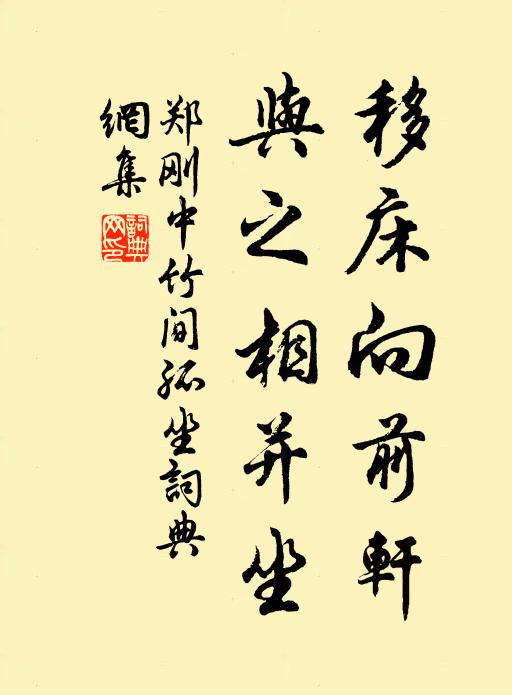 移床向前軒
與之相并坐
郑刚中竹间孤坐詞典
網集
詞典網印